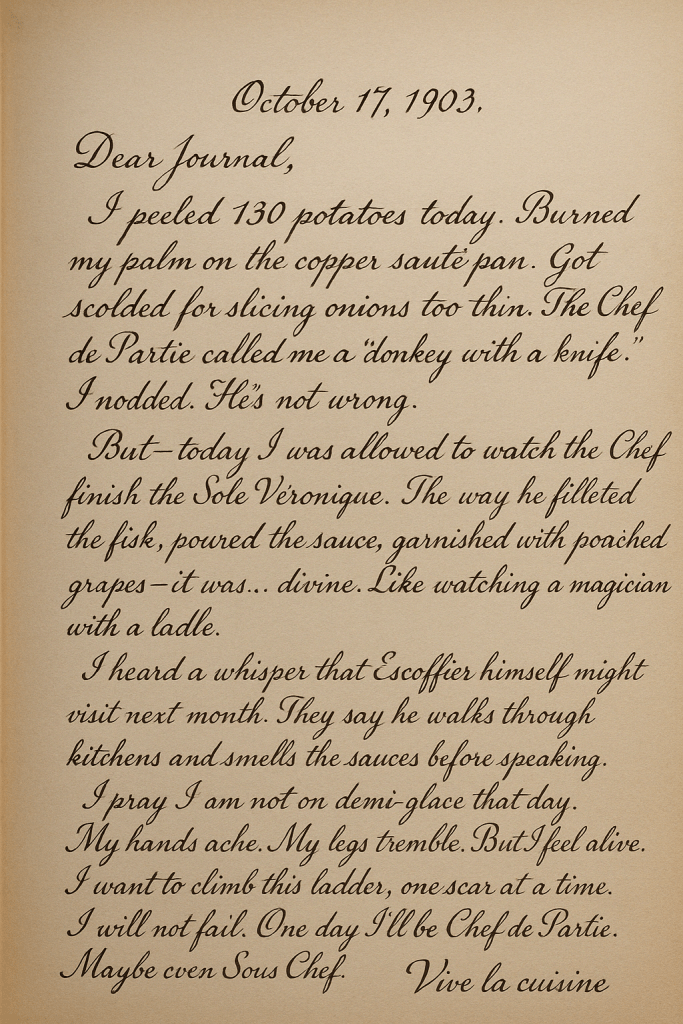 October 17, 1903.
Dear Journal,
I peeled 130 potatoes today. Burned
my palm on the copper sauté pan. Got
scolded for slicing onions too thin. The Chef
de Partie called me a "donkey with a knife."
I nodded. He"s not wrong.
But—today I was allowed to watch the Chef
finish the Sole Véronique. The way he filleted
the fisk, poured the sauce, garnished with poached
grapes—it was... divine. Like watching a magician
with a ladle.
I heard a whisper that Escoffier himself might
visit next month. They say he walks through
kitchens and smells the sauces before speaking.
I pray I am not on demi-glace that day.
My hands ache. My legs tremble. But I feel alive.
I want to climb this ladder, one scar at a time.
I will not fail. One day I'll be Chef de Partie.
Maybe even Sous Chef. Vive la cuisine